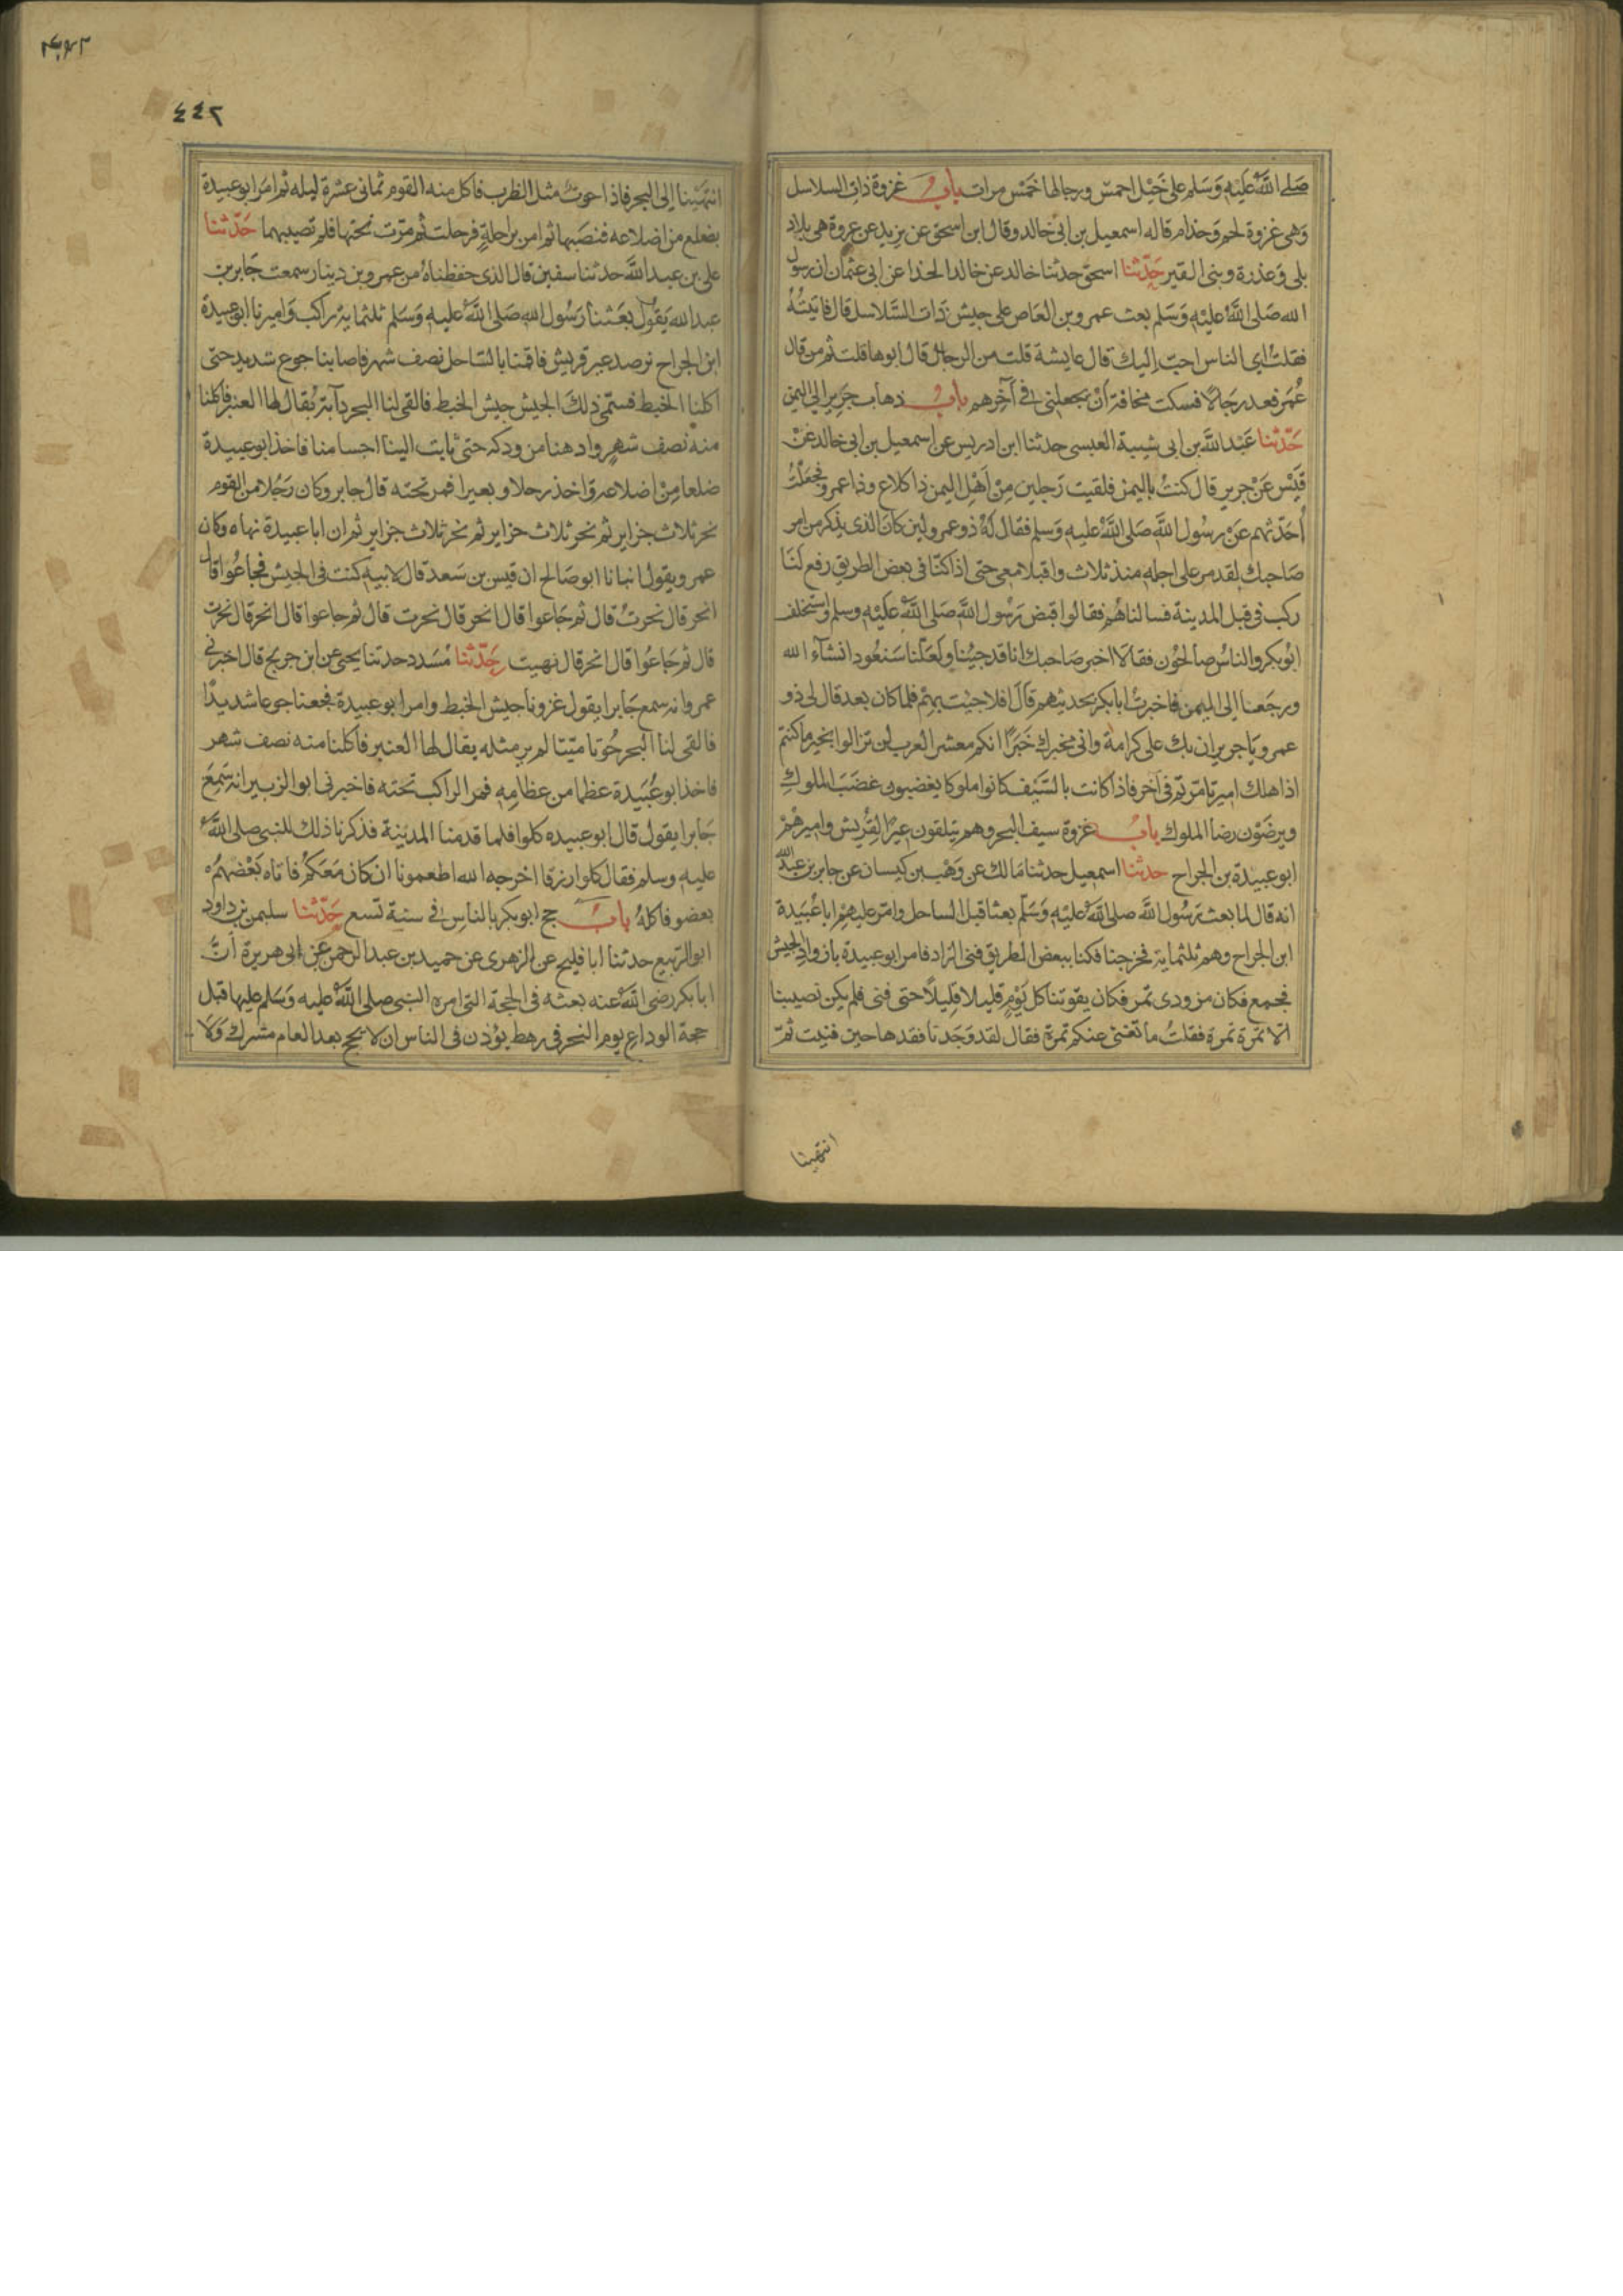 صَلى اللَّهُ عَلَيْهِ وَسَلم على خَيْل احمسَ ورجالها خَمْسَ مرات باب غزوة ذات السلاسل
وَهى غزوة لخم وَجذام قاله اسمعيل بن ابى خالد وقال ابن اسحق عن يزيد عن عروة هى بلاد
بلى وَعذرة وبنى القين حَدّثنا اسحق حدثنا خالد عن خالد الحذا عن ابى عثمان ان رسول
الله صَلى اللَّهُ عليْهِ وَسَلم بعث عمرو بن العَاص على جيش ذات السَّلاسل قال فاتيتُهُ
فقلتُ اى الناس احبّ إليك قال عايشة قلت من الرجال قال ابوها قلت ثم من قال
عُمَر فعد رجَالًا فسكت مخافة أنْ يجعلنى فى آخِرهم باب ذهاب جَرير إلى اليمن
حَدّثنا عَبْد اللَّه بن ابى شيبة العبسى حدثنا ابن ادريس عن اسمعيل بن ابى خالد عَنْ
قَيْس عَنْ جرير قال كنتُ باليمن فلقيت رَجلين مِنْ اَهْل اليمن ذا كلاع وذا عمرو فجعَلْتُ
أحَدّثهم عَنْ رسُول اللَّه صَلى اللَّهُ عليه وَسلم فقال لَهُ ذو عمرو لين كانَ الذى يذكر من امر
صَاحبك لقد مر على اجله منذ ثلاث واقبلا معى حتى اذا كنّا فى بعض الطريق رفع لَنَا
ركب فى قبل المدينة فسالناهُم فقالوا قبض رَسُول اللَّه صَلى اللَّهُ عَلَيْهِ وسلم واستخلف
ابُو بكر والناسُ صالحُون فقالا اخبر صَاحبك انا قد جيْنا ولَعَلّنا سَنعُود انشآء الله
ورجَعا إلى اليمن فاخبرتُ ابا بكر بحديثهم قَالَ افلا جيْت بهِم فلما كان بعد قال لى ذو
عمرو يَا جرير ان بك على كرامة وانى مخبرك خَبَرًا انكم معشر العرب لن تزالوا بخير ما كنتم
اذا هلك امير تامّرتم فى آخر فاذا كانت بالسَّيْف كانوا ملوكا يغضبون غضَبَ الملوكِ
ويرضَوْن رضا الملوك باب غزوة سيف البحر وهم يتلقون عيرًا لِقُرَيش واميرهُمْ
ابو عبيدة بن الجراح حدثنا اسمعيل حدثنا مَالك عن وَهْب بن كيسان عن جابر بن عبد الله
انه قال لما بعث رَسُول اللَّه صلى اللَّهُ عليْهِ وَسَلّم بعثا قبل الساحل وامّر عليهِمْ ابا عُبَيدة
ابن الجراح وهم ثلثماية فخرجنا فكنا ببعض الطريق فنى الزاد فامر ابو عبيدة بازواد الجيش
فجمع فكان مزودى تمر فكان يقوتنا كل يَوْمٍ قليلا قليلًا حتى فنى فلم يكن نصيبنا
الّا تمَرة تمَرة فقلتُ ما تغنى عنكم تمرة فقال لقد وَجَدنا فقدها حين فنيت ثمّ
انتهينا
٤٤٢
انتهَيْنا إلى البحر فاذا حوتٌ مثل الظرب فاكل منه القوم ثمانى عشرة ليله ثم امر ابو عبيدة
بضلع من اضلاعه فنصَبها ثم امر براحلةٍ فرحلت ثم مرّت تحتها فلم تصيبهما حَدّثنا
على بن عبد اللَّه حدثنا سفين قال الذى حفظناهُ من عمرو بن دينار سمعت جَابر بن
عبد الله يَقولُ بعَثنا رَسُول الله صَلى اللَّهُ عليهِ وَسَلم ثلثماية راكب وَاميرنا ابو عبيدة
ابن الجراح نرصد عير قريش فاقمنا بالساحل نصف شهر فاصابنا جوع شديد حتى
اكلنا الخبط فسمّى ذلك الجيش جيش الخبط فالقى لنا البحر دآبة يُقال لها العنبر فاكلنا
منهُ نصف شهرٍ وادهنا من ودكه حتى ثابت الينا اجسامنا فاخذ ابو عبيدة
ضلعا مِنْ اضلاعه وَاخذ رحلا وبعيرا فمر تحته قال جابر وكان رَجُلا من القوم
نحر ثلاث جزاير ثم نحر ثلاث جزاير ثم نحر ثلاث جزاير ثم ان ابا عبيدة نهاه وكان
عمرو يقول انبانا ابو صَالح ان قيس بن سَعد قال لابيه كنت فى الجيش فجاعُوا قال
انحر قال نحرتُ قال ثم جَاعوا قال انحر قال نحرت قال ثم جاعوا قال انحر قال نحرت
قال ثم جَاعُوا قال انحر قال نهيت حَدّثنا مُسَدد حدثنا يحيى عن ابن جريج قال اخبرنى
عمرو انه سمع جَابرا يقول غزونا جيش الخبط وامر ابو عبيدة فجعنا جوعا شديدًا
فالقى لنا البحر حُوتا ميّتا لم ير مثله يقال لها العنبر فاكلنا منه نصف شهر
فاخذ ابو عُبَيدة عظما من عظامِهِ فمر الراكب تحته فاخبرنى ابو الزبير انه سَمِعَ
جَابرا يقول قال ابو عبيده كلوا فلما قدمنا المدينة فذكرنا ذلك للنبى صلى اللَّهُ
عليه وسلم فقال كلوا رزقا اخرجه الله اطعمونا ان كان مَعَكمُ فاتاه بَعْضهُمُ
بعضو فاكلهُ باب حج ابو بكر بالناس فى سنة تسع حَدّثنا سليمن بن داود
ابو الربيع حدثنا ابا فليح عن الزهرى عن حميد بن عبد الرحمن عن ابى هريرة أنَّ
ابا بكر رضى اللَّهُ عنه بعثه فى الحجة التى امره النبى صلى اللَّهُ عليه وَسَلم عليها قبل
حجة الوداعِ يوم النحر فى رهط يؤذن فى الناس ان لا يحج بعد العام مشرك وَلَا